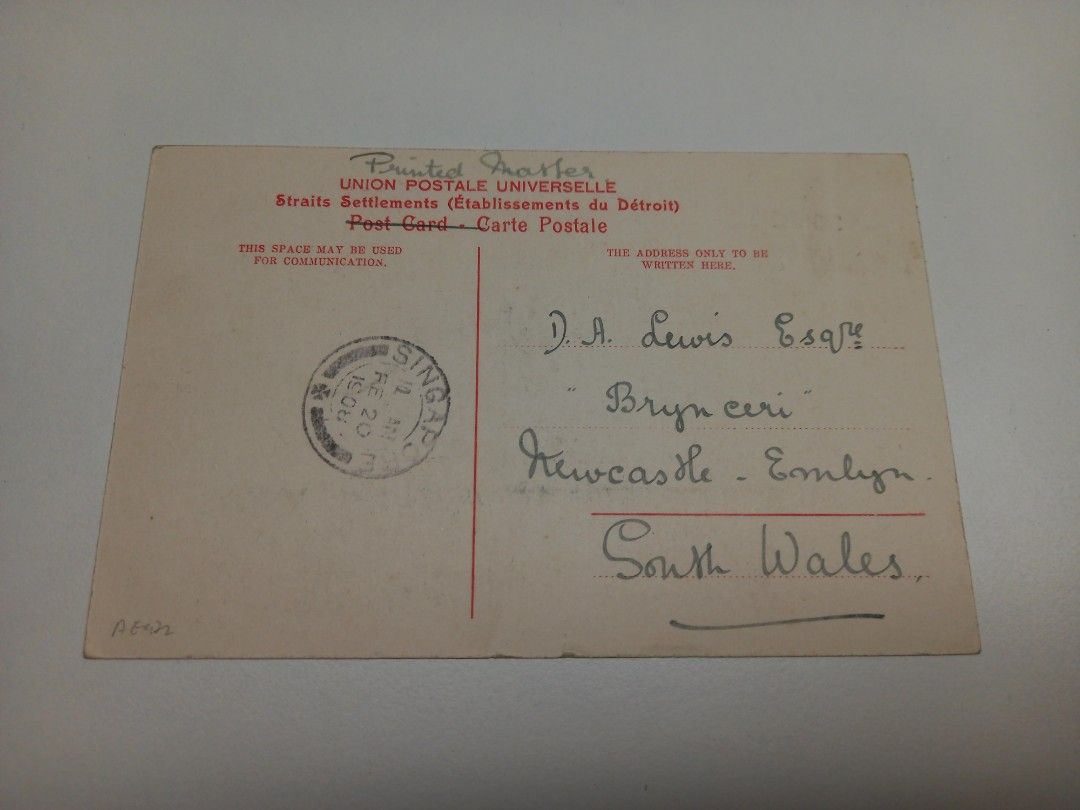 Printed Matter.
UNION POSTALE UNIVERSELLE
Straits Settlements (Établissements du Détroit)
Post Card - Carte Postale
THIS SPACE MAY BE USED
FOR COMMUNICATION.
THE ADDRESS ONLY TO BE
WRITTEN HERE.
D. A. Lewis Esqre
"Bryn ceri"
Newcastle - Emlyn.
South Wales,
SINGAP
FE 20
1908